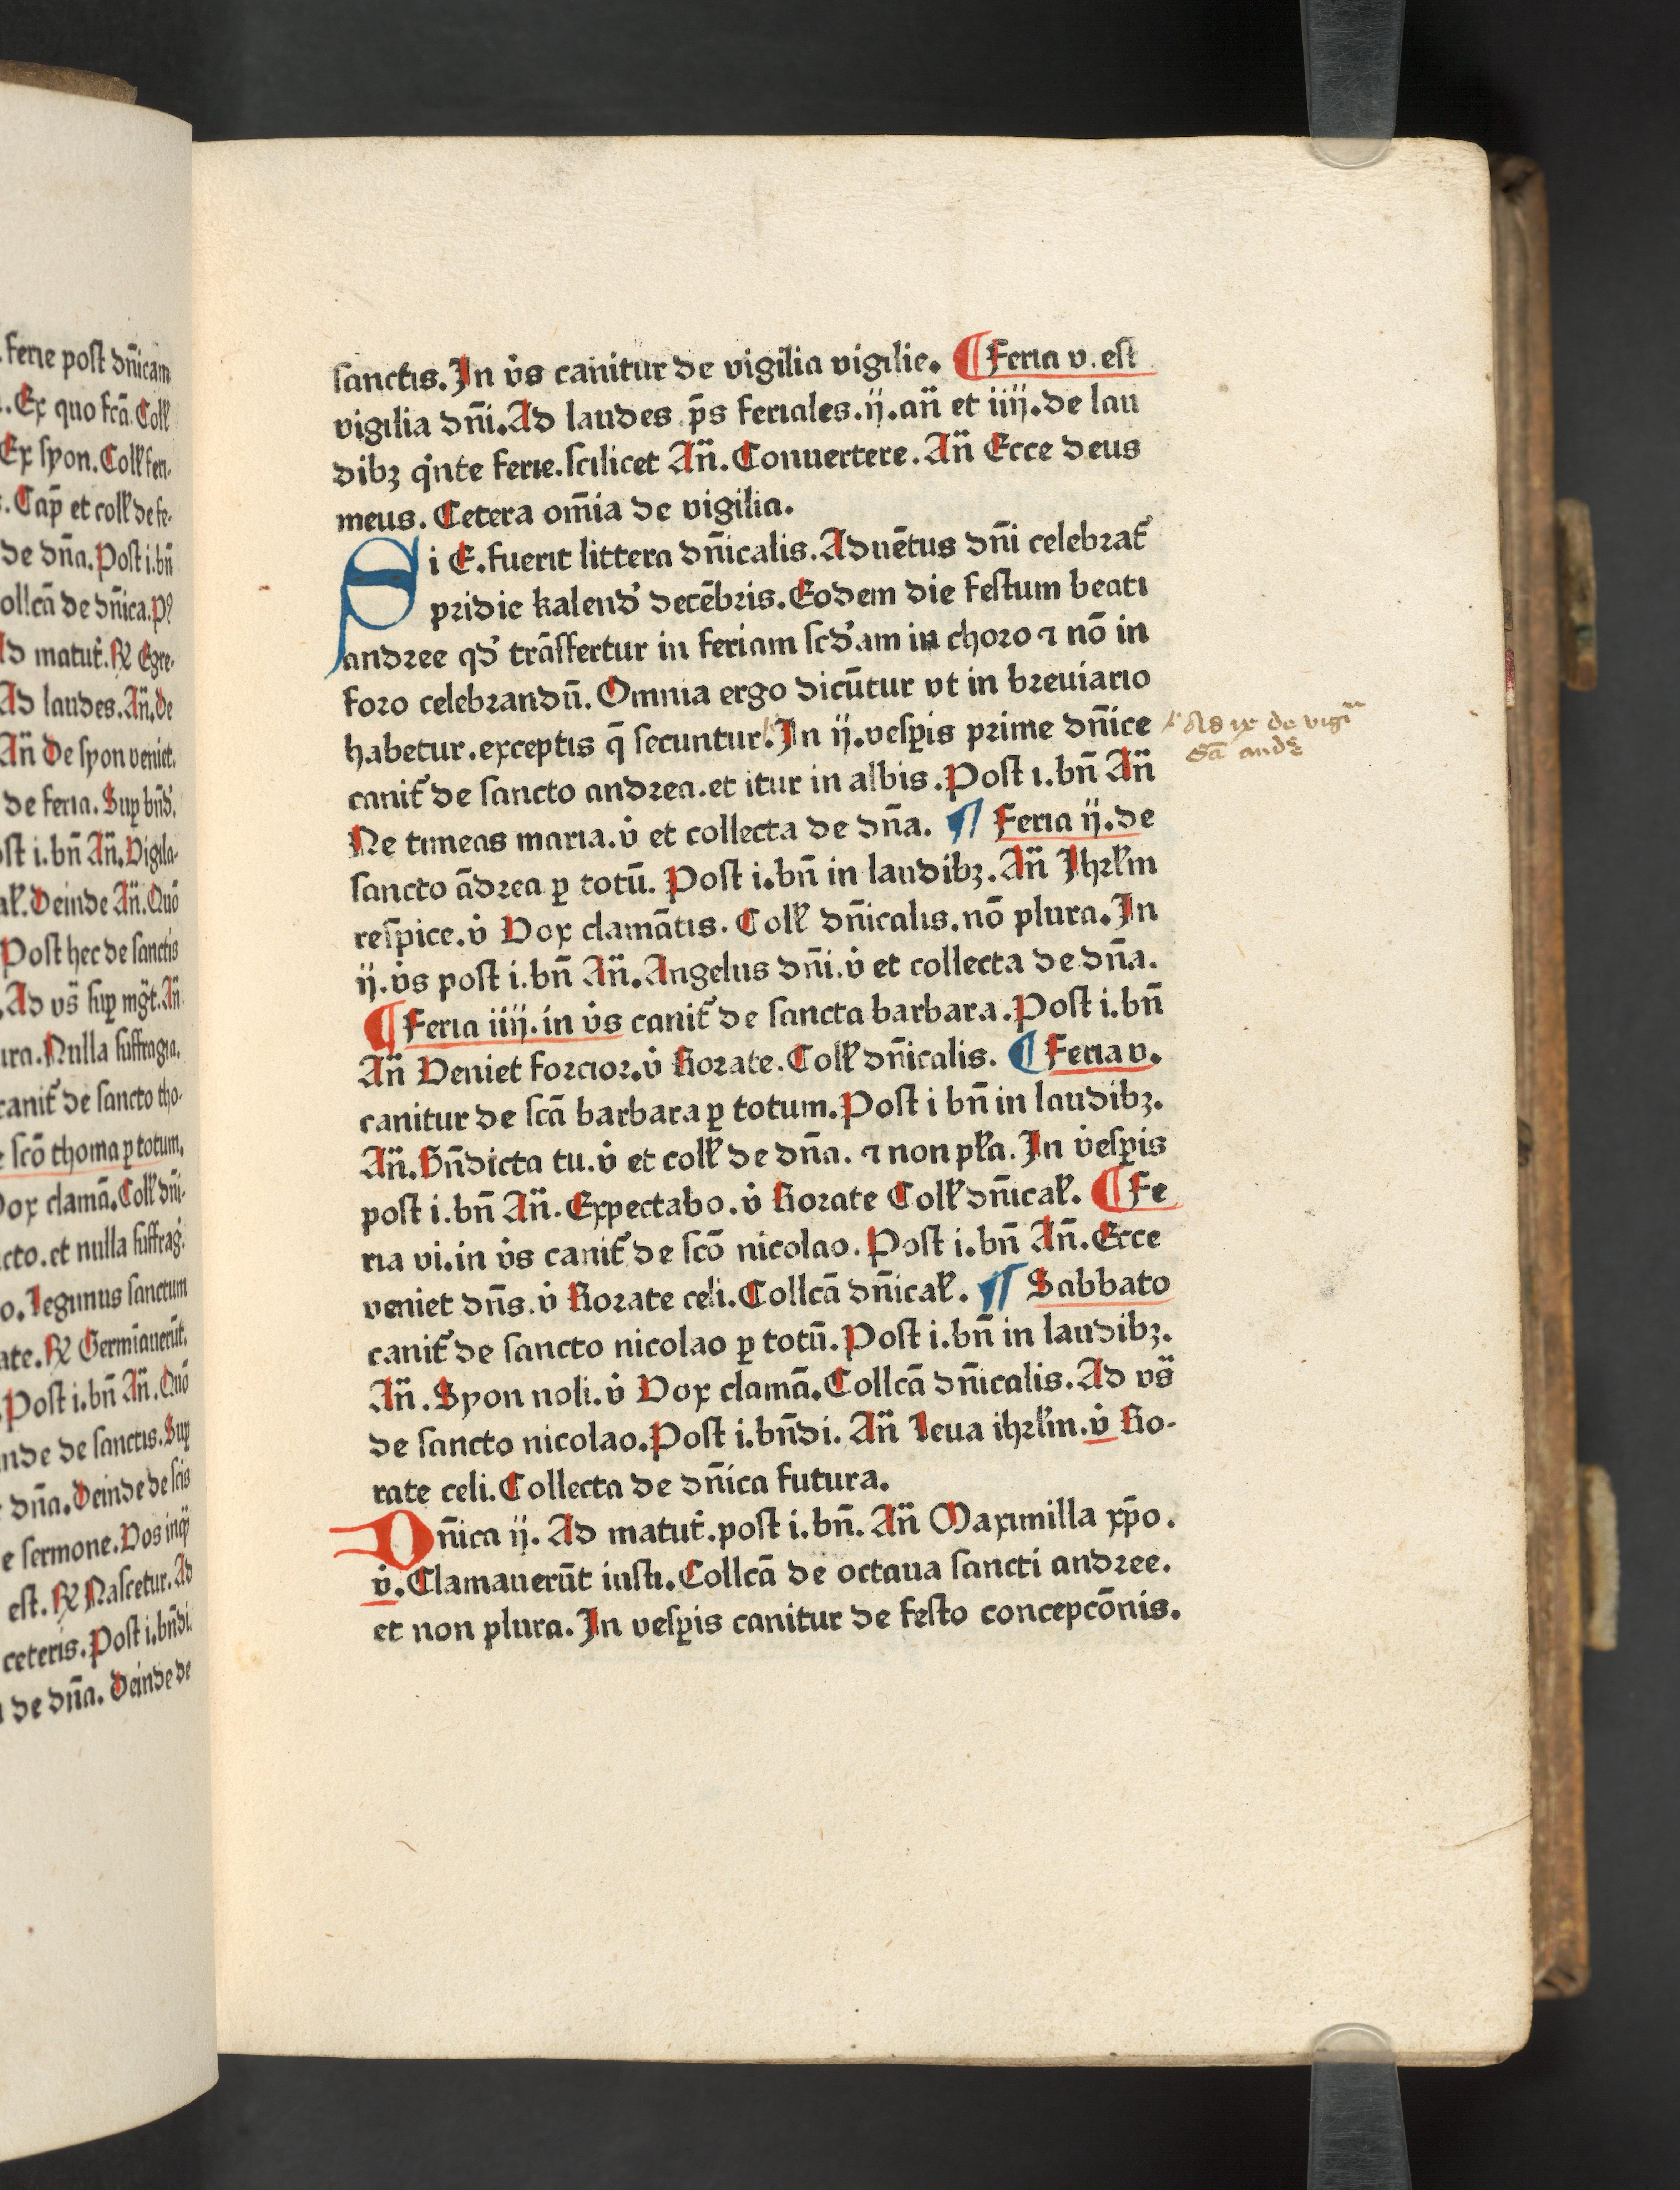 ferie post dn̄icam
Ex quo fcā. Coll
Ex syon. Coll fen-
Cap̄ et coll de fe-
de dn̄a. Post i. bn̄
ollcā de dn̄ica. p
d matut. R Egre-
Ad laudes. An̄. de
An̄ De syon veniet.
de feria. Sup bn̄d.
st i. bn̄ An̄. Vigila-
Deinde An̄. Quō
Post hec de sanctis
Ad vs̄ sup mgt. An̄
ura. Nulla suffragia.
canit de sancto tho-
scō thoma p totum.
Vox clamā. Coll dn̄i-
cto. et nulla suffrag.
Iegunus sanctum
ate. R Germīauerūt.
Post i. bn̄ An̄. Quō
nde de sanctis. Sup
dn̄a. Deinde de scis
e sermone. Vos inq
est. R Nascetur. Ad
ceteris. Post i. bn̄di.
de dn̄a. Deinde de
sanctis. In v̇s canitur de vigilia vigilie. ¶ Feria v. est
vigilia dn̄i. Ad laudes p̄s feriales. ij. an̄ et iiij. de lau
dibꝫ qͥnte ferie. scilicet An̄. Conuertere. An̄ Ecce deus
meus. Cetera om̄ia de vigilia.
Si E. fuerit littera dn̄icalis. Aduētus dn̄i celebrat᷑
pridie kalend᷑ decēbris. Eodem die festum beati
andree qd᷑ trāsfertur in feriam scd᷑am in choro ⁊ nō in
foro celebrandū. Omnia ergo dicūtur vt in breuiario
habetur. exceptis q̄ secuntur. In ij. vesꝑis prime dn̄ice
canit᷑ de sancto andrea. et itur in albis. Post i. bn̄ An̄
Ne timeas maria. v̇ et collecta de dn̄a. ¶ Feria ij. de
sancto ādrea ꝑ totū. Post i. bn̄ in laudibꝫ. An̄ Ihrl̄m
respice. v̇ Vox clamātis. Coll̄ dn̄icalis. nō plura. In
ij. v̇s post i. bn̄ An̄. Angelus dn̄i. v̇ et collecta de dn̄a.
¶ Feria iiij. in v̇s canit᷑ de sancta barbara. Post i. bn̄
An̄ Veniet forcior. v̇ Rorate. Coll̄ dn̄icalis. ¶ Feria v.
canitur de scā barbara ꝑ totum. Post i bn̄ in laudibꝫ.
An̄. Bn̄dicta tu. v̇ et coll̄ de dn̄a. ⁊ non pł̄a. In vesꝑis
post i. bn̄ An̄. Expectabo. v̇ Rorate Coll̄ dn̄icał. ¶ Fe
ria vi. in v̇s canit᷑ de scō nicolao. Post i. bn̄ An̄. Ecce
veniet dn̄s. v̇ Rorate celi. Collcā dn̄icał. ¶ Sabbato
canit᷑ de sancto nicolao ꝑ totū. Post i. bn̄ in laudibꝫ.
An̄. Syon noli. v̇ Vox clamā. Collcā dn̄icalis. Ad vs̄
de sancto nicolao. Post i. bn̄di. An̄ Leua ihrl̄m. v̇ Ro-
rate celi. Collecta de dn̄ica futura.
Dn̄ica ij. Ad matut̄. post i. bn̄. An̄ Maximilla xp̄o.
v̇. Clamauerūt iusti. Collcā de octaua sancti andree.
et non plura. In vesꝑis canitur de festo concepcōnis.
ix de vigi
andr